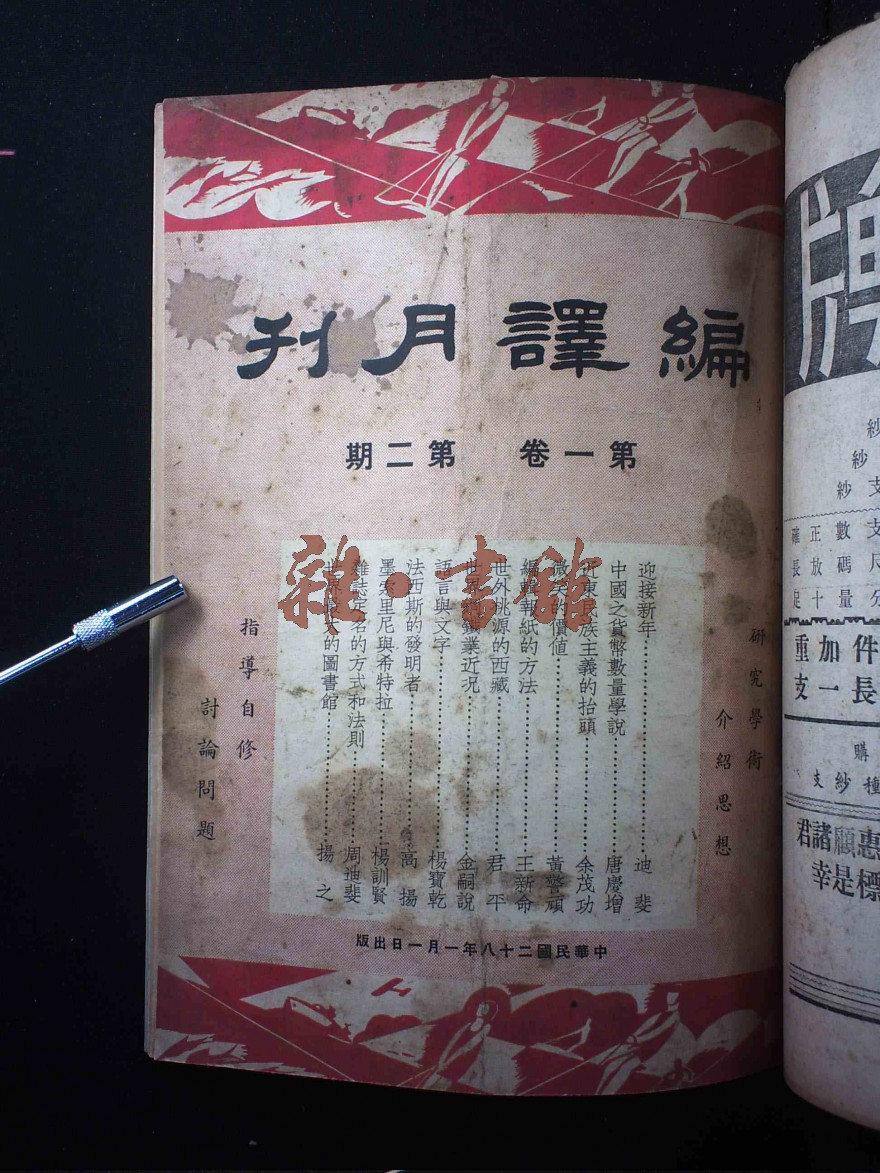 編譯月刊
第一卷 第二期
研究學術
介紹思想
迎接新年 迪斐
中國之貨幣數量學說 唐慶增
近東民族主義的抬頭 余茂功
微笑的價值 黃警頑
編輯報紙的方法 王新命
世外桃源的西藏 君平
世界鋼鐵業近況 金嗣說
語言與文字 楊寶乾
法西斯的發明者 高揚
墨索里尼與希特拉 楊訓賢
雜誌定名的方式和法則 周迪斐
世界最大的圖書館 揚之
指導自修
討論問題
中華民國二十八年一月一日出版
雜·書館
牌
紗
紗
紗支
支數正確
尺碼放長
分量十足
件加重
長一支
購
種紗支
惠顧諸君
標是幸